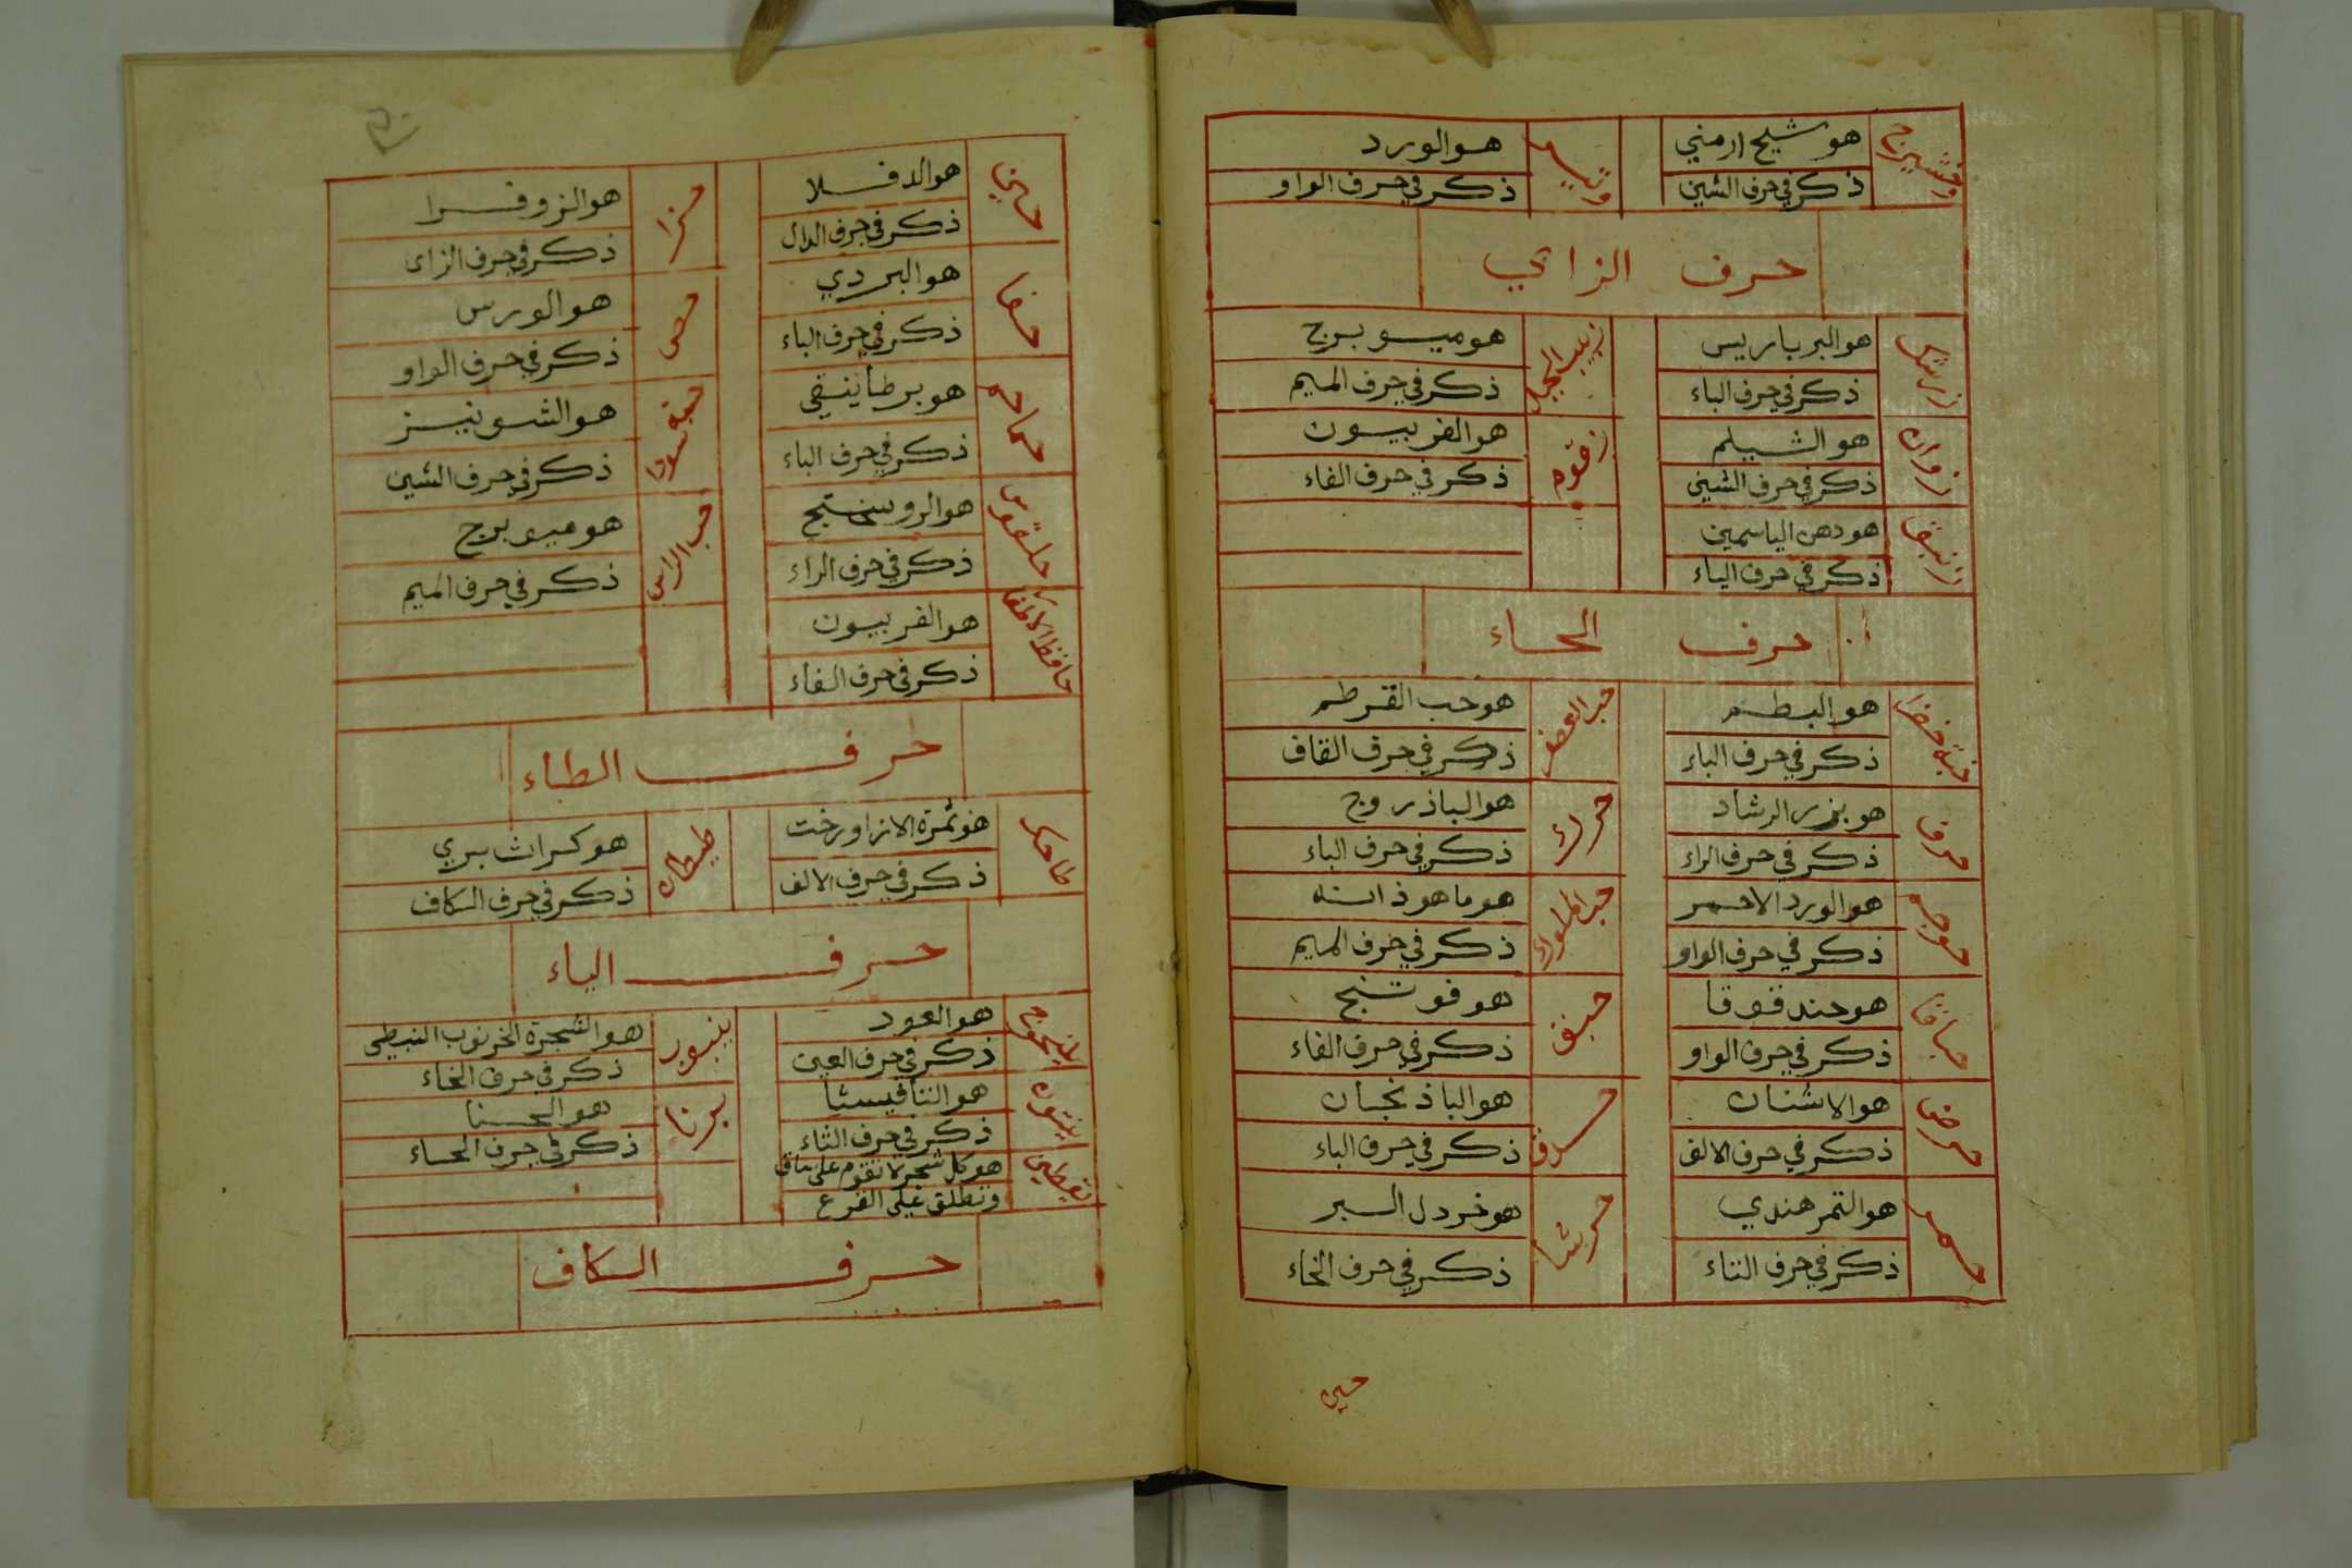 وخشيزج
هو شيح ارمني
ذكر في حرف الشين
هو الورد
ذكر في حرف الواو
حرف الزاي
زرشك
هو البرباريس
ذكر في حرف الباء
زبيب الجبل
هو ميوبرج
ذكر في حرف الميم
زوان
هو الشيلم
ذكر في حرف الشين
زقوم
هو الفربيون
ذكر في حرف الفاء
زنبق
هو دهن الياسمين
ذكر في حرف الياء
حرف الحاء
حبة خضرا
هو البطم
ذكر في حرف الباء
حب العصفر
هو حب القرطم
ذكر في حرف القاف
حرف
هو بزر الرشاد
ذكر في حرف الراء
حوك
هو الباذروج
ذكر في حرف الباء
حوجم
هو الورد الاحمر
ذكر في حرف الواو
حب الملوك
هو ماهوذانه
ذكر في حرف الميم
حباقا
هو حندقوقا
ذكر في حرف الواو
حبق
هو فوتنج
ذكر في حرف الفاء
حرض
هو الاشنان
ذكر في حرف الالف
حدق
هو الباذنجان
ذكر في حرف الباء
حمر
هو التمر هندي
ذكر في حرف التاء
حرشا
هو خردل البر
ذكر في حرف الخاء
حبن
حبن
هو الدفلا
ذكر في حرف الدال
حزا
هو الزوفرا
ذكر في حرف الزاي
حفا
هو البردي
ذكر في حرف الباء
حص
هو الورس
ذكر في حرف الواو
حماحم
هو برطانيقي
ذكر في حرف الباء
حبة سودا
هو الشونيز
ذكر في حرف الشين
حلقوس
هو الروسختج
ذكر في حرف الراء
حب الراس
هو ميوبرج
ذكر في حرف الميم
حافظ الاطفال
هو الفربيون
ذكر في حرف الفاء
حرف الطاء
طاحك
هو ثمرة الازاورخت
ذكر في حرف الالف
طيطان
هو كراث بري
ذكر في حرف الكاف
حرف الياء
يلنجوج
هو العود
ذكر في حرف العين
ينبوب
هو الشجرة الخرنوب النبطي
ذكر في حرف الخاء
ينتون
هو الثافيسيا
ذكر في حرف الثاء
يرنا
هو الحنا
ذكر في حرف الحاء
يقطين
هو كل شجر لا تقوم على ساق
وتطلق على القرع
حرف الكاف